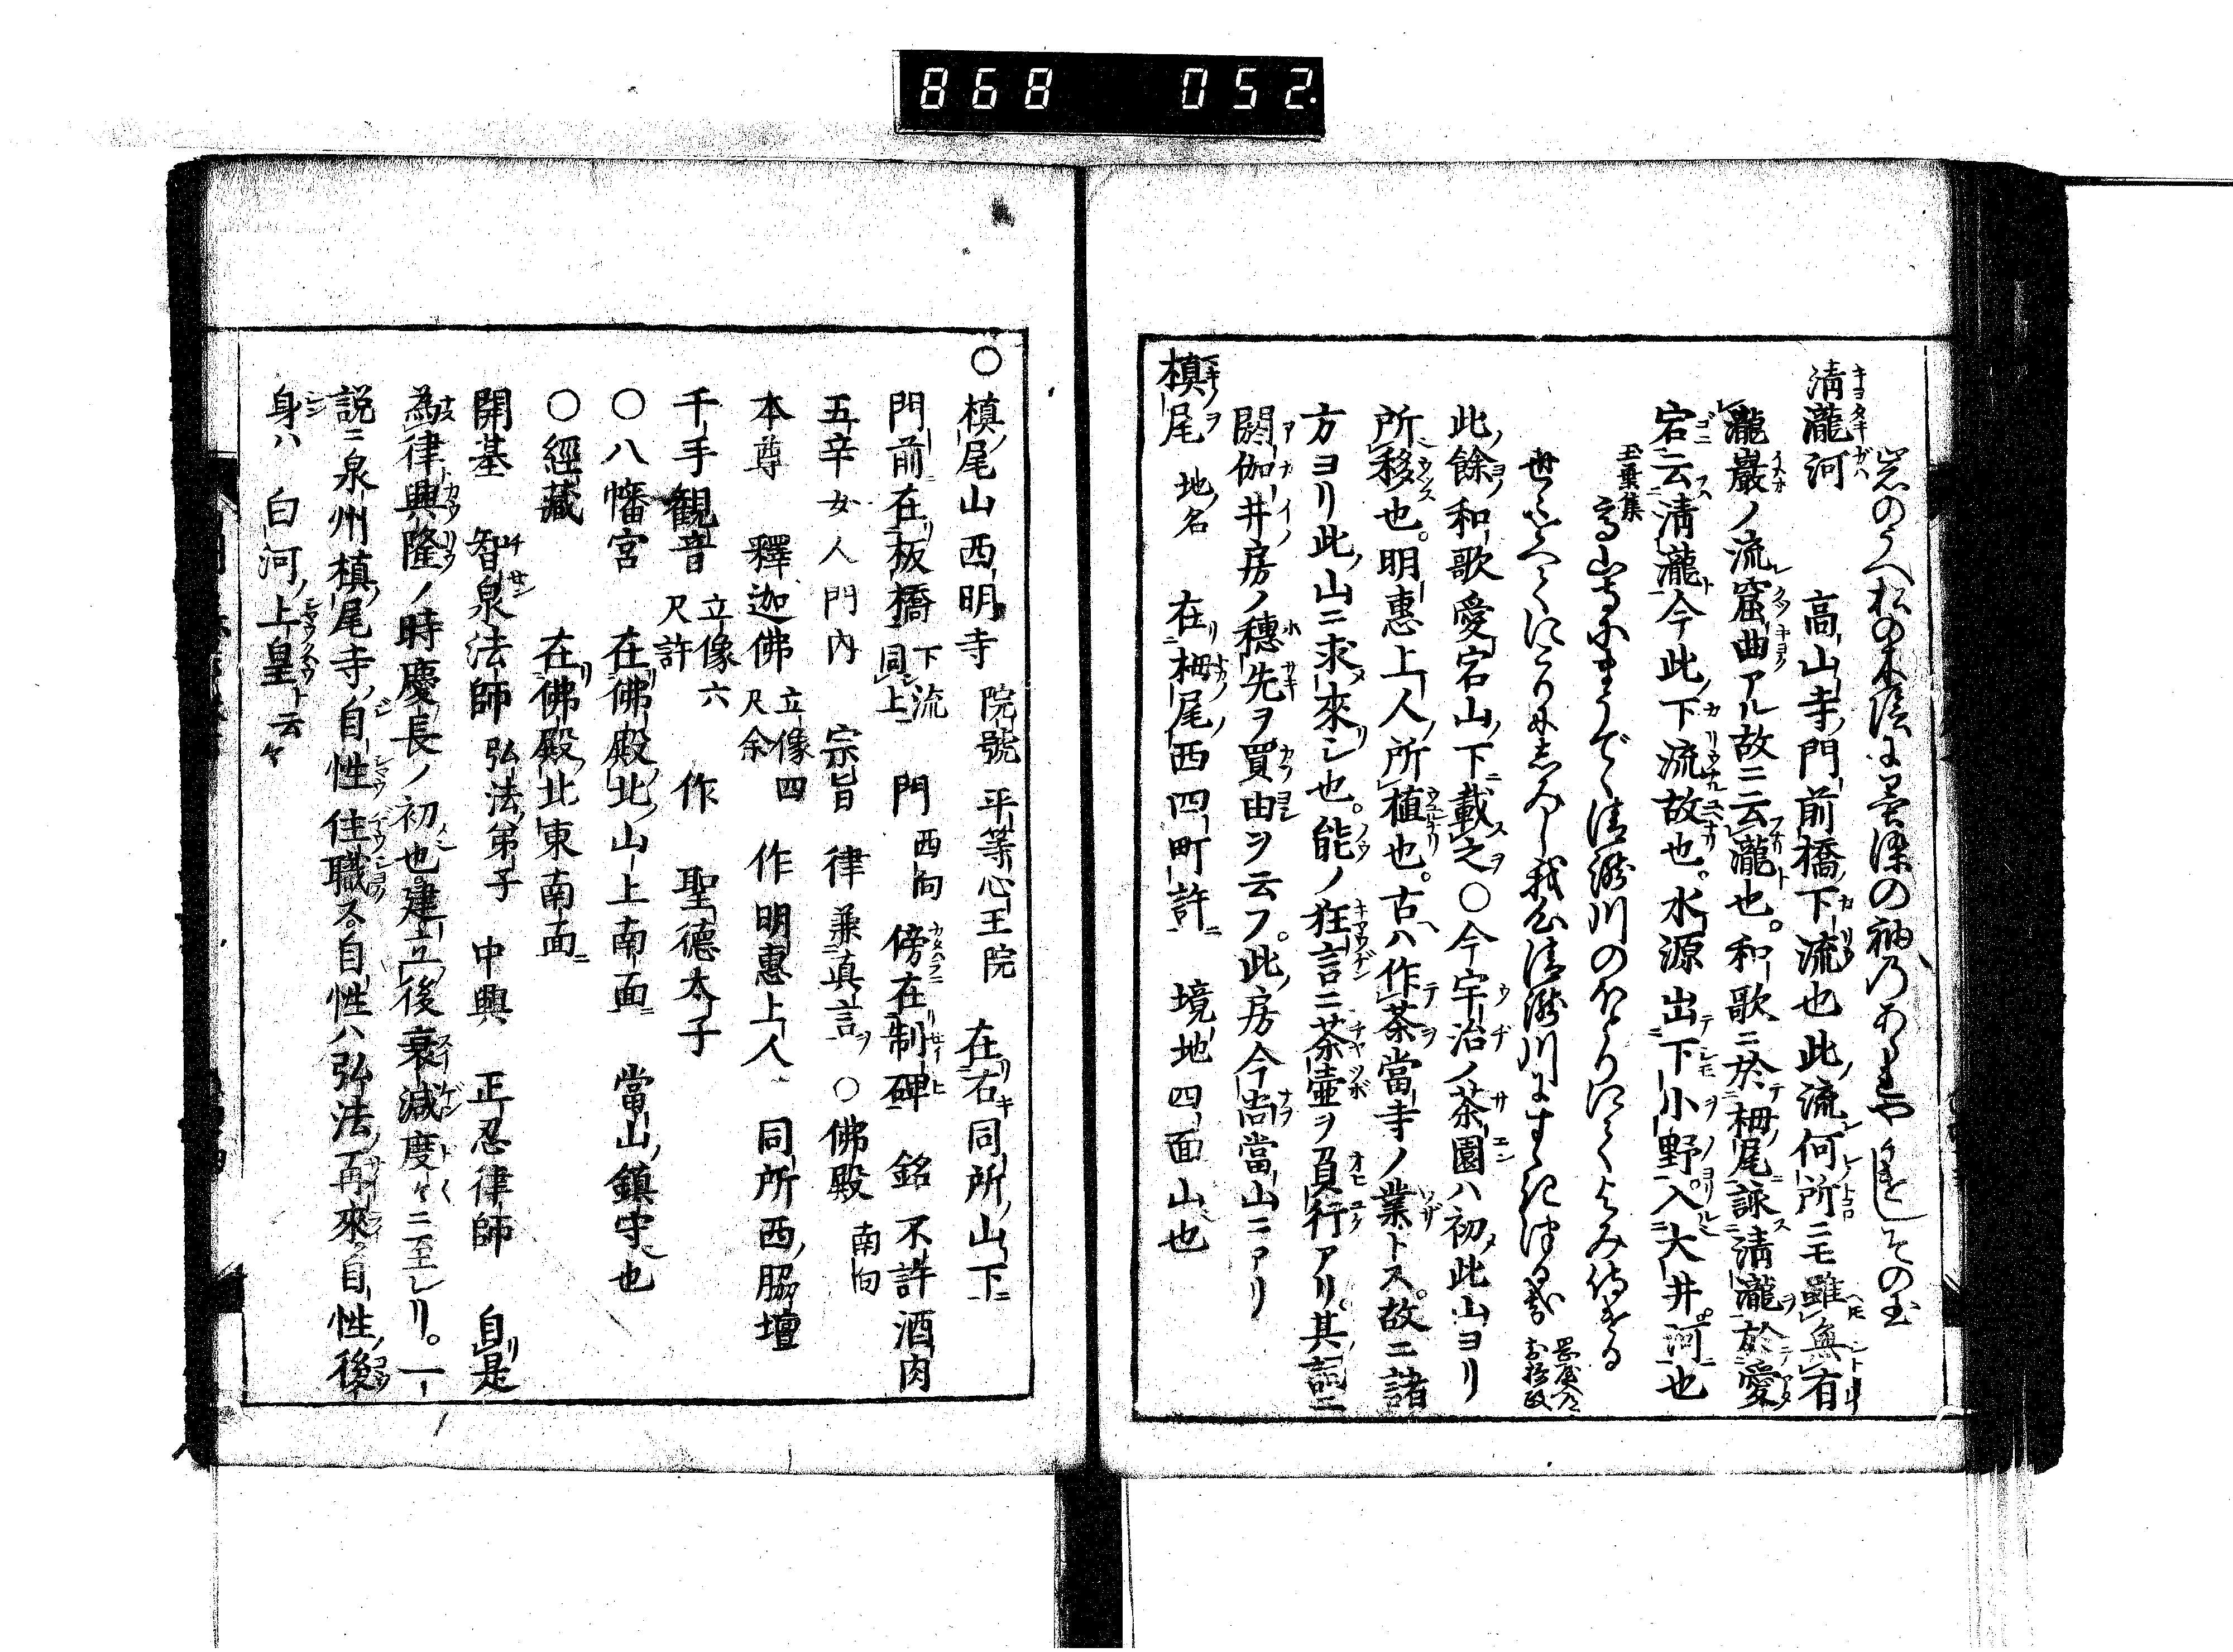 868 052
岩のうへ松の木陰に墨染の袖乃あられやかけしその玉
清瀧河 高山寺門前橋下流也此流何所ニモ雖無有
瀧巖ノ流窟曲アル故ニ云瀧也。和歌ニ於栂尾詠清瀧於愛
宕云清瀧今此下流故也。水源出下小野入大井河也
玉葉集 高山寺にまうでゝ清瀧川のほとりにてよみ侍ける
此餘和歌愛宕山下載之〇今宇治ノ茶園ハ初此山ヨリ
所移也。明惠上人所植也。古ハ作茶當寺ノ業トス。故ニ諸
方ヨリ此山ニ求來シ也。能ノ狂言ニ茶壺ヲ負行アリ。其詞ニ
閼伽井房ノ穗先ヲ買由ヲ云フ。此房今尚當山ニアリ
槙尾 地名 在栂尾西四町許 境地四面山也
〇槙尾山西明寺 院號平等心王院 在右同所山下
門前在板橋 下流同上 門 西向 傍在制碑 銘不許酒肉
五辛女人門内 宗旨 律兼真言 〇佛殿 南向
本尊 釋迦佛 立像四尺余 作明惠上人 同所西脇壇
千手觀音 立像六尺許 作 聖德太子
〇八幡宮 在佛殿北山上南面 當山鎮守也
〇經藏 在佛殿北東南面
開基 智泉法師 弘法弟子 中興 正忍律師 自是
為律興隆ノ時慶長ノ初也建立後衰減度々ニ至レリ。一
説ニ泉州槙尾寺自性住職ス。自性ハ弘法再來自性後
身ハ 白河上皇ト云々